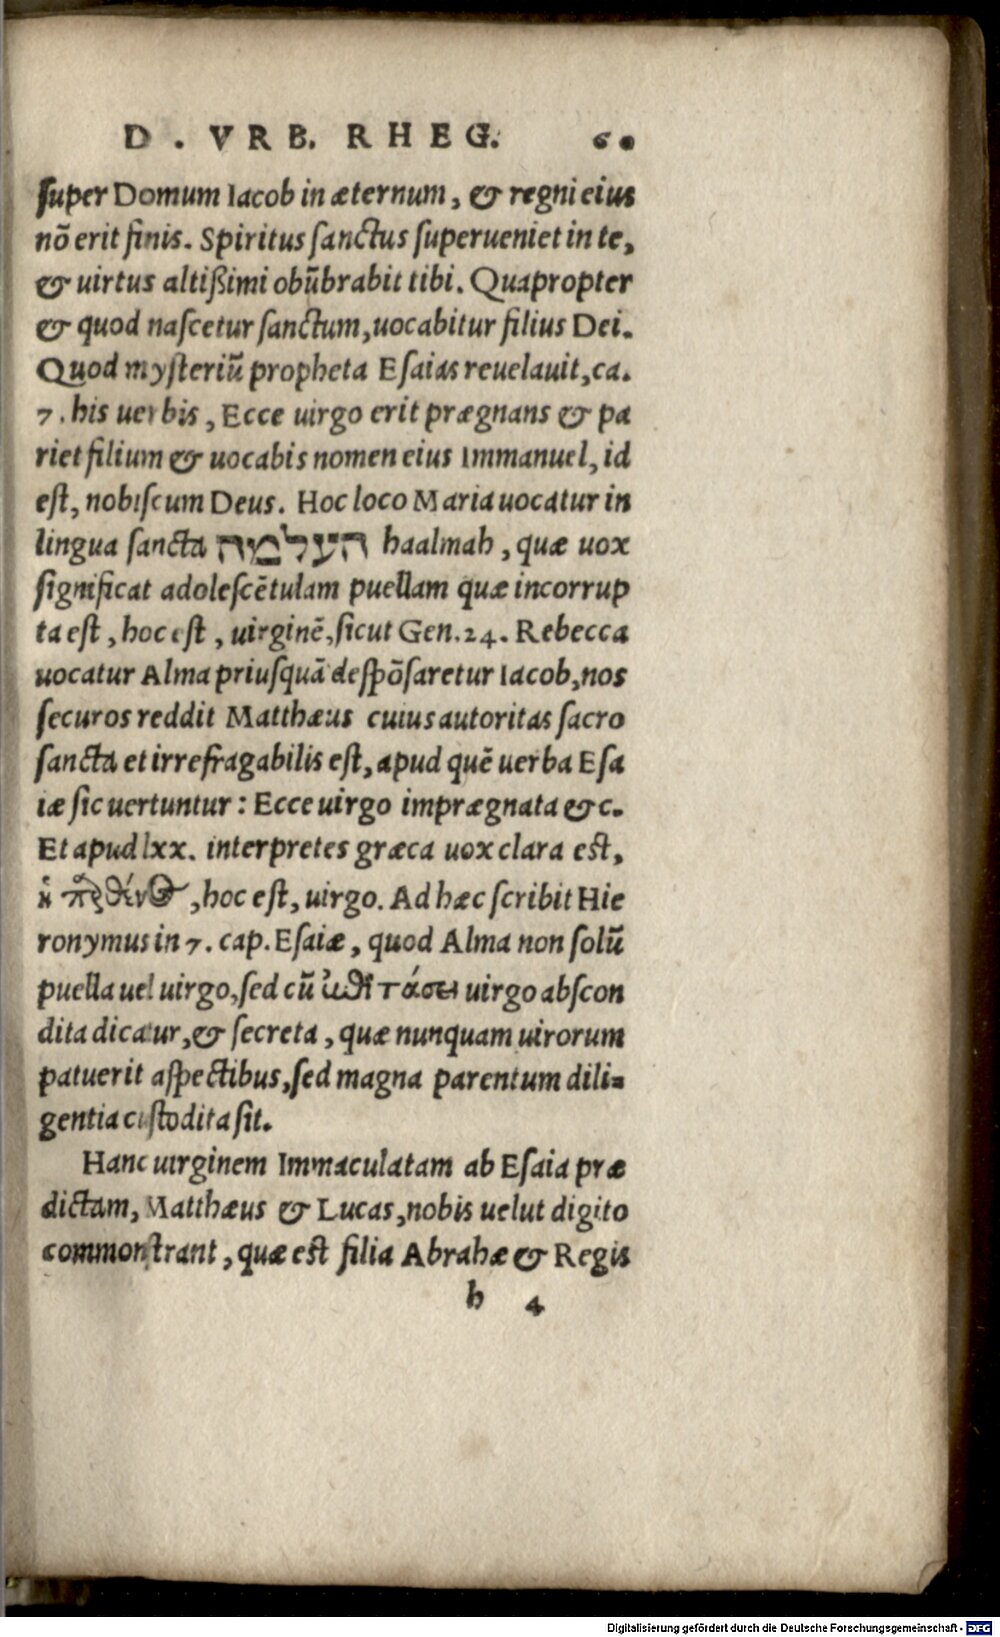 D. VRB. RHEG. 60
ſuper Domum Iacob in æternum, & regni eius
nõ erit finis. Spiritus ſanctus ſuperueniet in te,
& uirtus altißimi obũbrabit tibi. Quapropter
& quod naſcetur ſanctum, uocabitur filius Dei.
Quod myſteriũ propheta Eſaias reuelauit, ca.
7. his uerbis, Ecce uirgo erit prægnans & pa
riet filium & uocabis nomen eius Immanuel, id
eſt, nobiſcum Deus. Hoc loco Maria uocatur in
lingua ſancta העלמה haalmah, quæ uox
ſignificat adoleſcẽtulam puellam quæ incorrup
ta eſt, hoc eſt, uirginẽ, ſicut Gen.24. Rebecca
uocatur Alma priuſquã deſpõſaretur Iacob, nos
ſecuros reddit Matthæus cuius autoritas ſacro
ſancta et irrefragabilis eſt, apud quẽ uerba Eſa
iæ ſic uertuntur: Ecce uirgo imprægnata &c.
Et apud lxx. interpretes græca uox clara eſt,
ἡ παρθένος, hoc eſt, uirgo. Ad hæc ſcribit Hie
ronymus in 7. cap. Eſaiæ, quod Alma non ſolũ
puella uel uirgo, ſed cũ ἐπιτάσει uirgo abſcon
dita dicatur, & ſecreta, quæ nunquam uirorum
patuerit aſpectibus, ſed magna parentum dili=
gentia cuſtodita ſit.
Hanc uirginem Immaculatam ab Eſaia præ
dictam, Matthæus & Lucas, nobis uelut digito
commonſtrant, quæ eſt filia Abrahæ & Regis
h 4
Digitalisierung gefördert durch die Deutsche Forschungsgemeinschaft - DFG